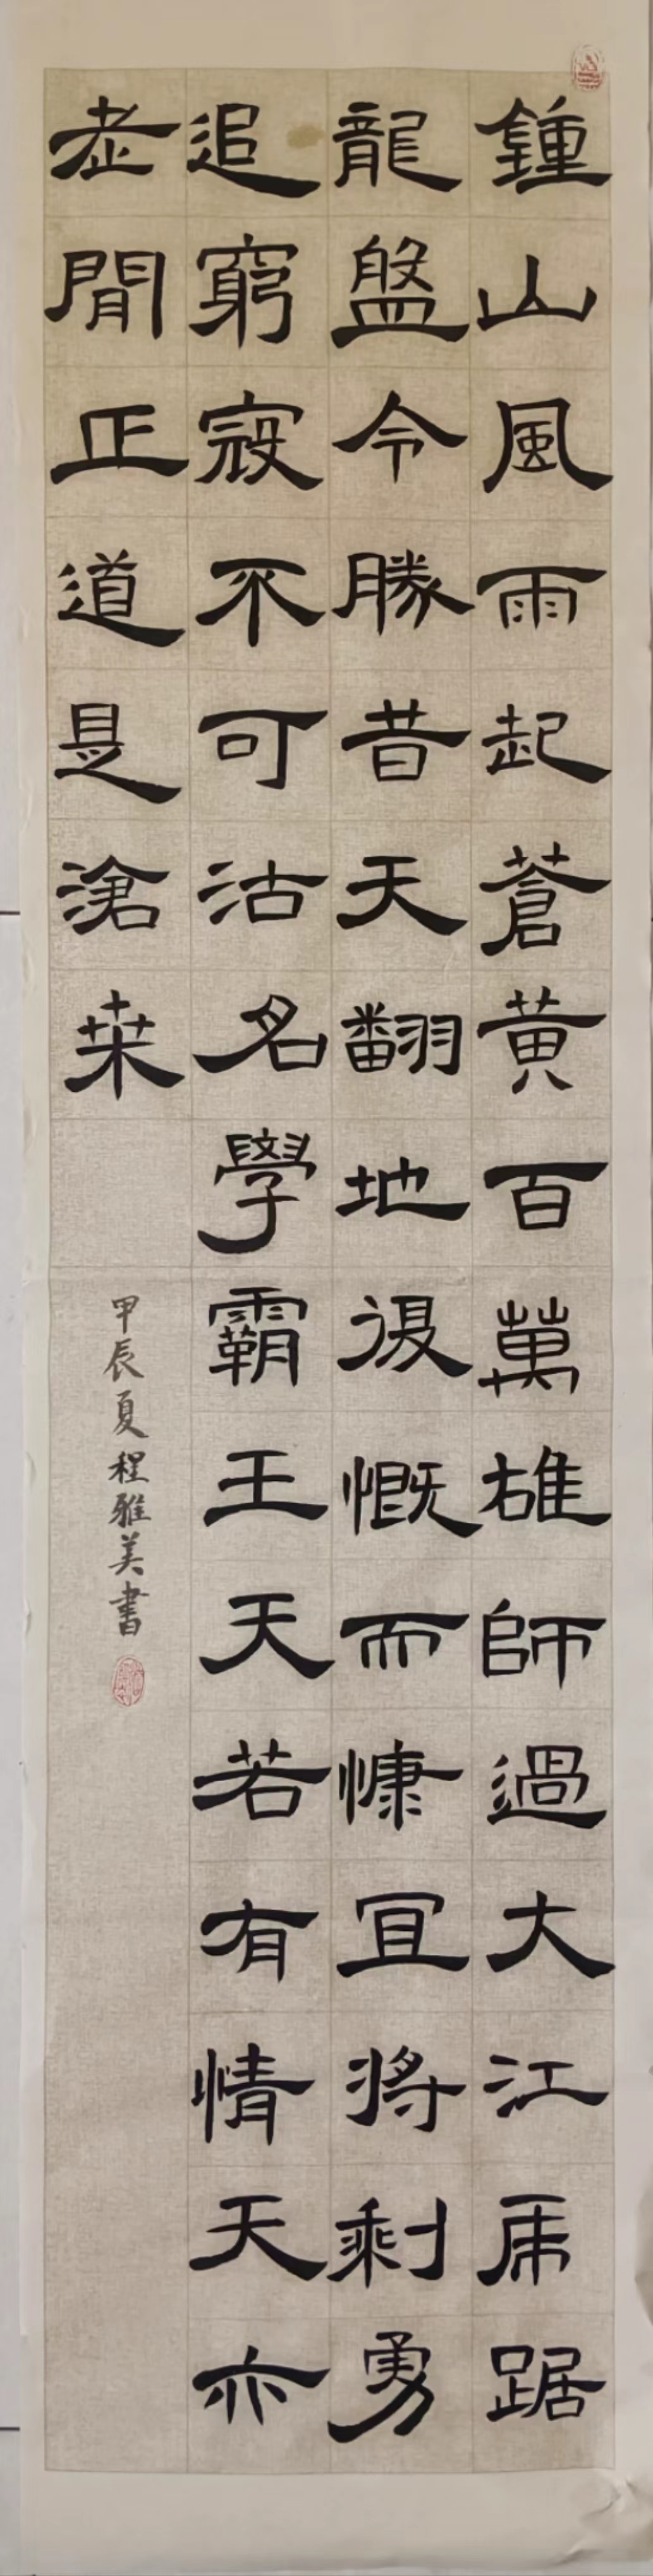 鍾山風雨起蒼黃百萬雄師過大江虎踞
龍盤今勝昔天翻地覆慨而慷宜將剩勇
追窮寇不可沽名學霸王天若有情天亦
老閒正道是滄桑
甲辰夏程雅美書